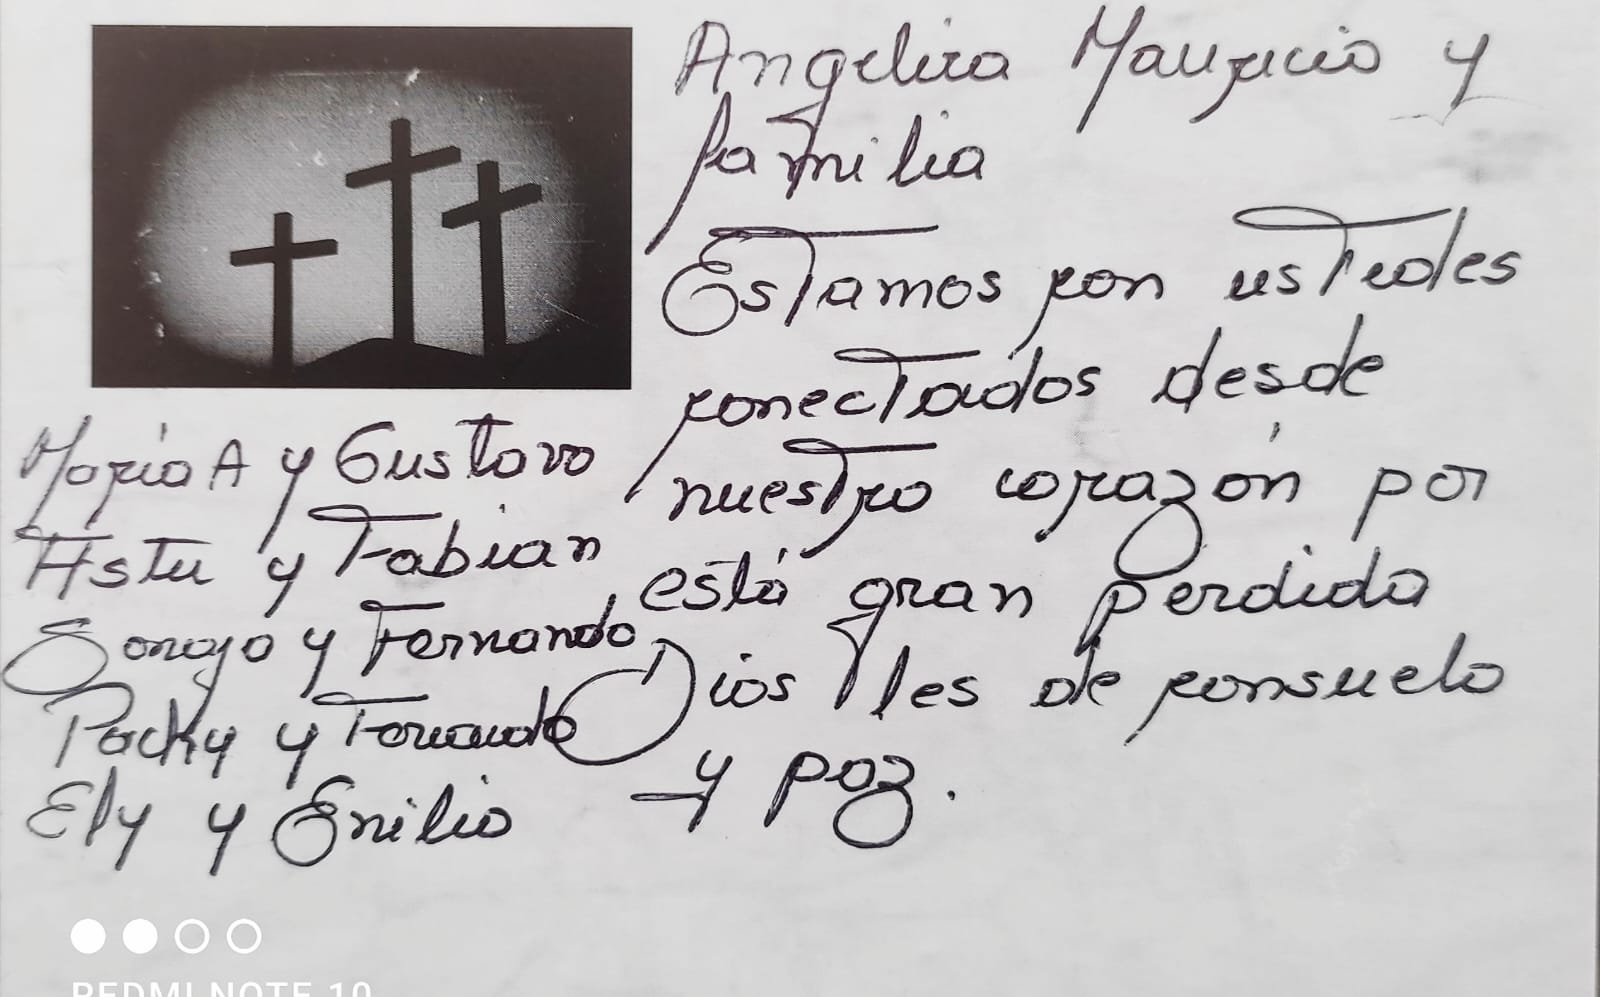 Angelica Mauricio y
familia
Estamos con ustedes
conectados desde
nuestro corazón por
está gran perdida
Dios les de consuelo
y paz.
Maria A y Gustavo
y Fabian
y Fernando
Pachy y Fernando
Ely y Emilio
REDMI NOTE 10